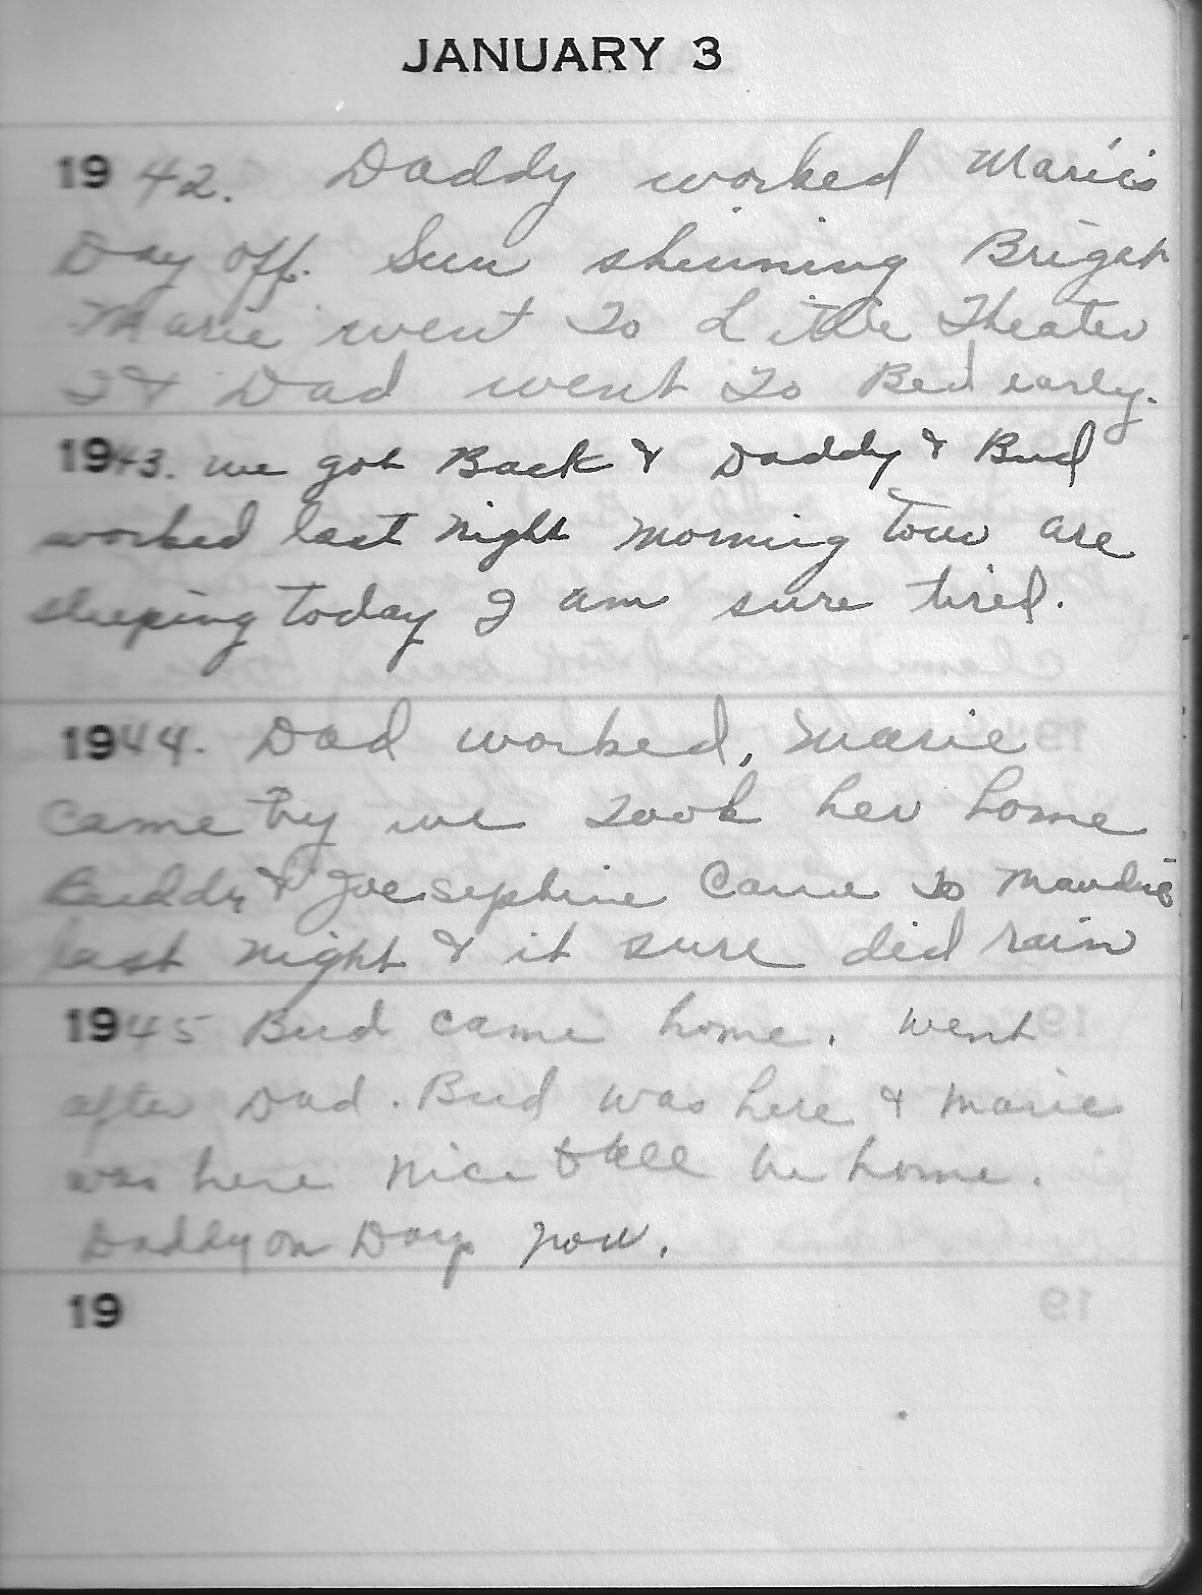 JANUARY 3
1942. Daddy worked Marie's
Day off. Sun shinning Brigah
Marie went To Little Theater
I & Dad went To Bed early.
1943. we got Back & Daddy & Bud
worked last night morning Tour are
sleeping today I am sure tired.
1944. Dad worked, Marie
came by we took her home
Buddy & Joesephine Came to Maudie
last night & it sure did rain
1945 Bud came home. went
after Dad. Bud was here & Marie
was here nice to all be home.
Daddy on Days now.
19